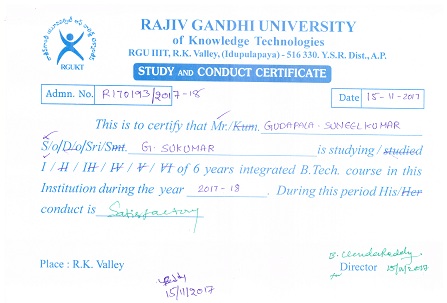 RAJIV GANDHI UNIVERSITY
of Knowledge Technologies
RGU IIIT, R.K. Valley, (Idupulapaya) - 516 330. Y.S.R. Dist., A.P.
RGUKT
STUDY AND CONDUCT CERTIFICATE
Admn. No. R170193/2017-18 Date 15-11-2017
This is to certify that Mr./Kum. GUDAPALA. SUNEELKUMAR
S/o/D/o/Sri/Smt. G. SUKUMAR is studying / studied
I / II / III / IV / V / VI of 6 years integrated B.Tech. course in this
Institution during the year 2017-18. During this period His/Her
conduct is Satisfactory
Place : R.K. Valley
Director 15/11/2017
15/11/2017